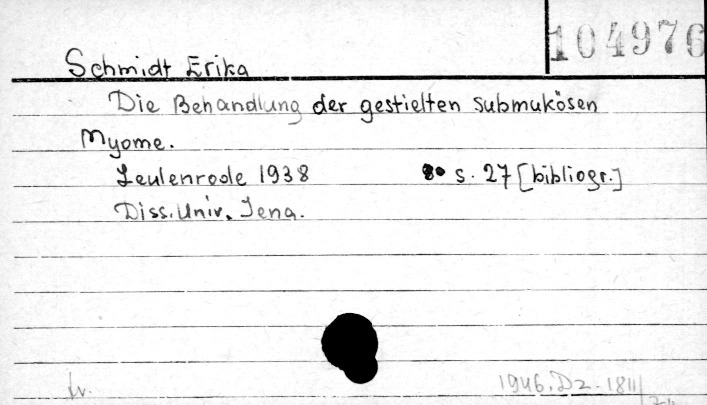 104976
Schmidt Erika
Die Behandlung der gestielten submukösen
Myome.
Zeulenroole 1938 8° s. 27 [bibliogr.]
Diss. Univ. Jena.
1946. Dz. 1811